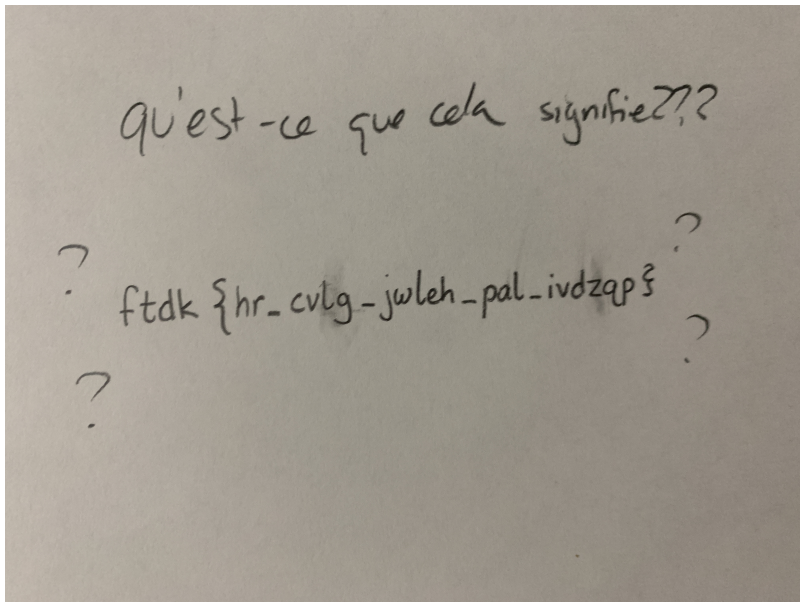 qu'est-ce que cela signifie???
? ?
ftdk {hr_cvlg_jwleh_pal_ivdzqp}
? ?